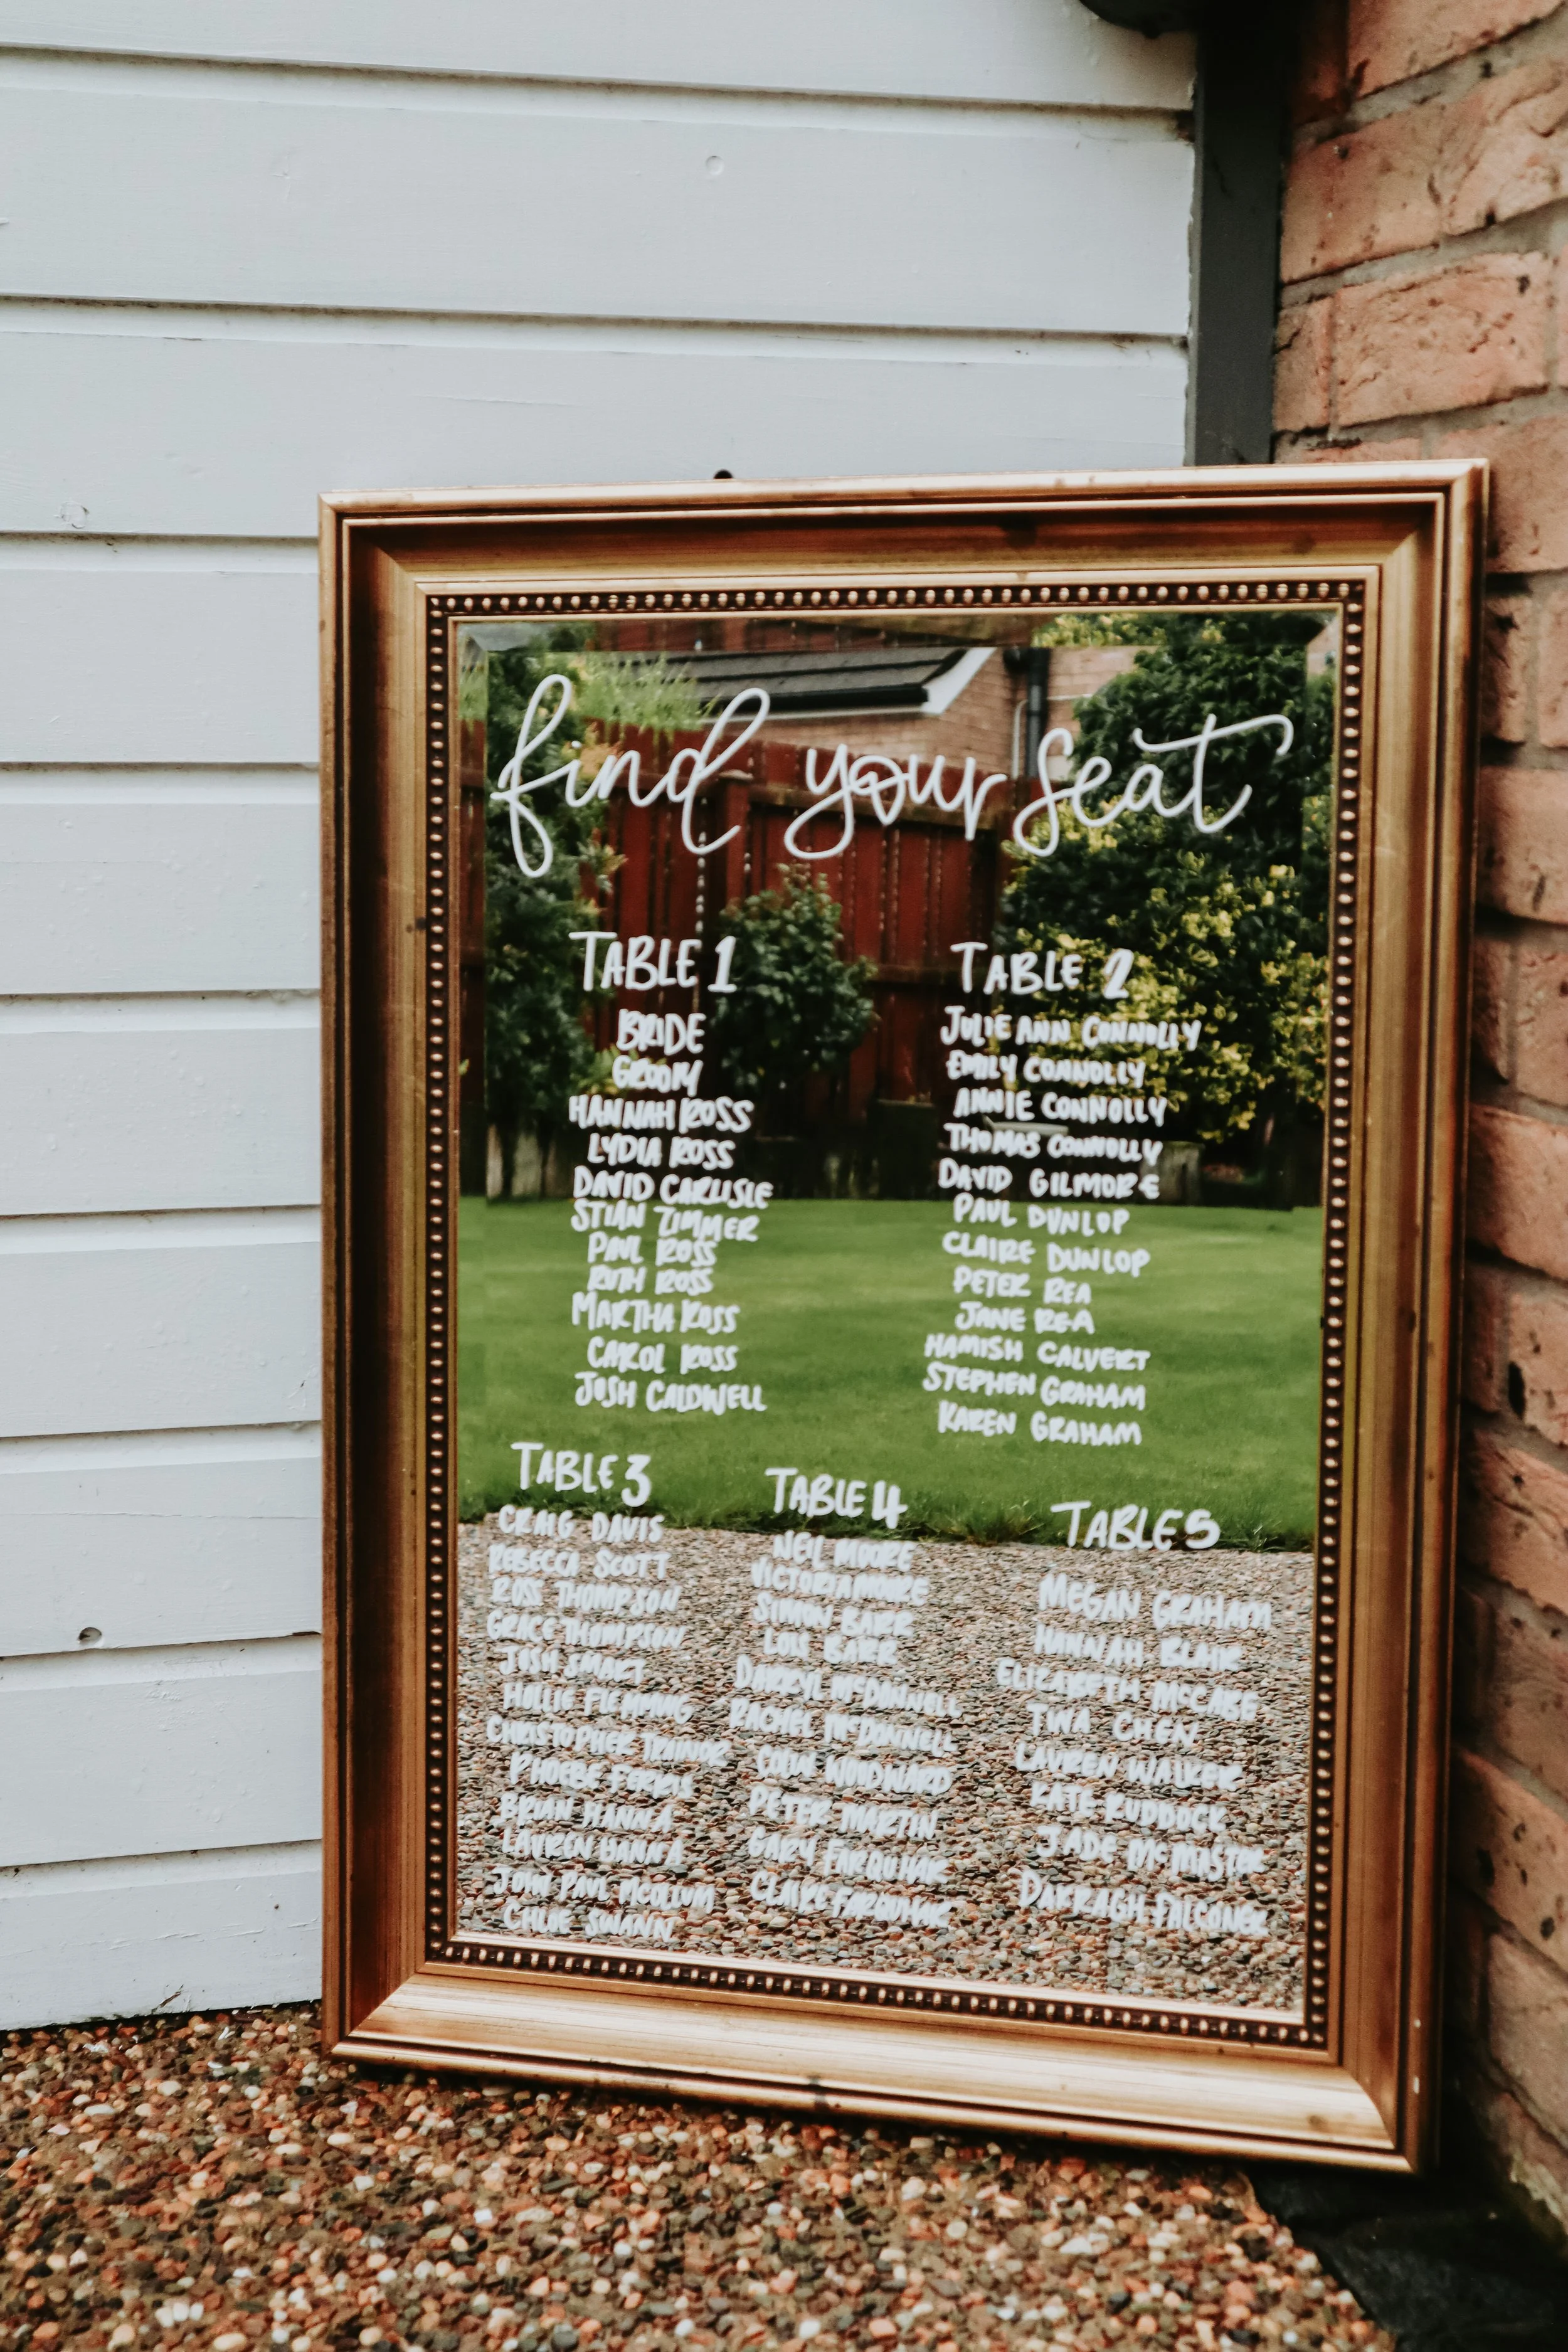 find your seat
TABLE 1
BRIDE
GROOM
HANNAH ROSS
LYDIA ROSS
DAVID CARLISLE
STIAN ZIMMER
PAUL ROSS
RUTH ROSS
MARTHA ROSS
CAROL ROSS
JOSH CALDWELL
TABLE 2
JULIE ANN CONNOLLY
EMILY CONNOLLY
ANNIE CONNOLLY
THOMAS CONNOLLY
DAVID GILMORE
PAUL DUNLOP
CLAIRE DUNLOP
PETER REA
JANE REA
HAMISH CALVERT
STEPHEN GRAHAM
KAREN GRAHAM
TABLE 3
CRAIG DAVIS
REBECCA SCOTT
ROSS THOMPSON
GRACE THOMPSON
JOSH SMART
HOLLIE FLEMMING
CHRISTOPHER TRAINOR
PHOEBE FERRIS
BRIAN HANNA
LAUREN HANNA
JOHN PAUL MCOLLUM
CHLOE SWANN
TABLE 4
NEIL MOORE
VICTORIA MOORE
SIMON BARR
LOIS BARR
DARRYL McDONNELL
RACHEL McDONNELL
COLIN WOODWARD
PETER MARTIN
GARY FARQUHAR
CLAIRE FARQUHAR
TABLE 5
MEGAN GRAHAM
HANNAH BLAIR
ELIZABETH McCABE
TINA CHEN
LAUREN WALKER
KATE RUDDOCK
JADE McMASTER
DARRAGH FALCONER